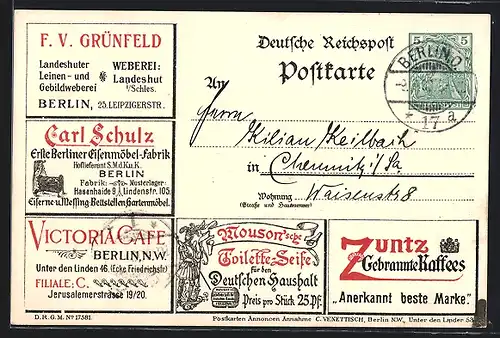 F. V. GRÜNFELD
Landeshuter
Leinen- und
Gebildweberei
WEBEREI:
Landeshut
i/Schles.
BERLIN, 25. LEIPZIGERSTR.
Carl Schulz
Erste Berliner Eisenmöbel-Fabrik
Hoflieferant S.M.d.K.u.K.
BERLIN
Fabrik: Musterlager:
Hasenhaide 9 Lindenstr. 105.
Eiserne u. Messing-Bettstellen, Gartenmöbel.
VICTORIA CAFÉ
BERLIN, N.W.
Unter den Linden 46. (Ecke Friedrichstr)
FILIALE: C.
Jerusalemerstrasse 19/20.
D. R. G. M. No 17581
Deutsche Reichspost
Postkarte
5 5
BERLIN O.
* 17 a
An
Herrn Kilian Keilbach
in Chemnitz i/Sa.
Wohnung Waisenstr 8
(Straße und Hausnummer)
Mouson'sche
Toilette-Seife
für den
Deutschen Haushalt
Preis pro Stück 25 Pf.
Zuntz
Gebrannte Kaffees
„Anerkannt beste Marke"
Postkarten Annoncen Annahme C. VENETTISCH, Berlin NW., Unter den Linden